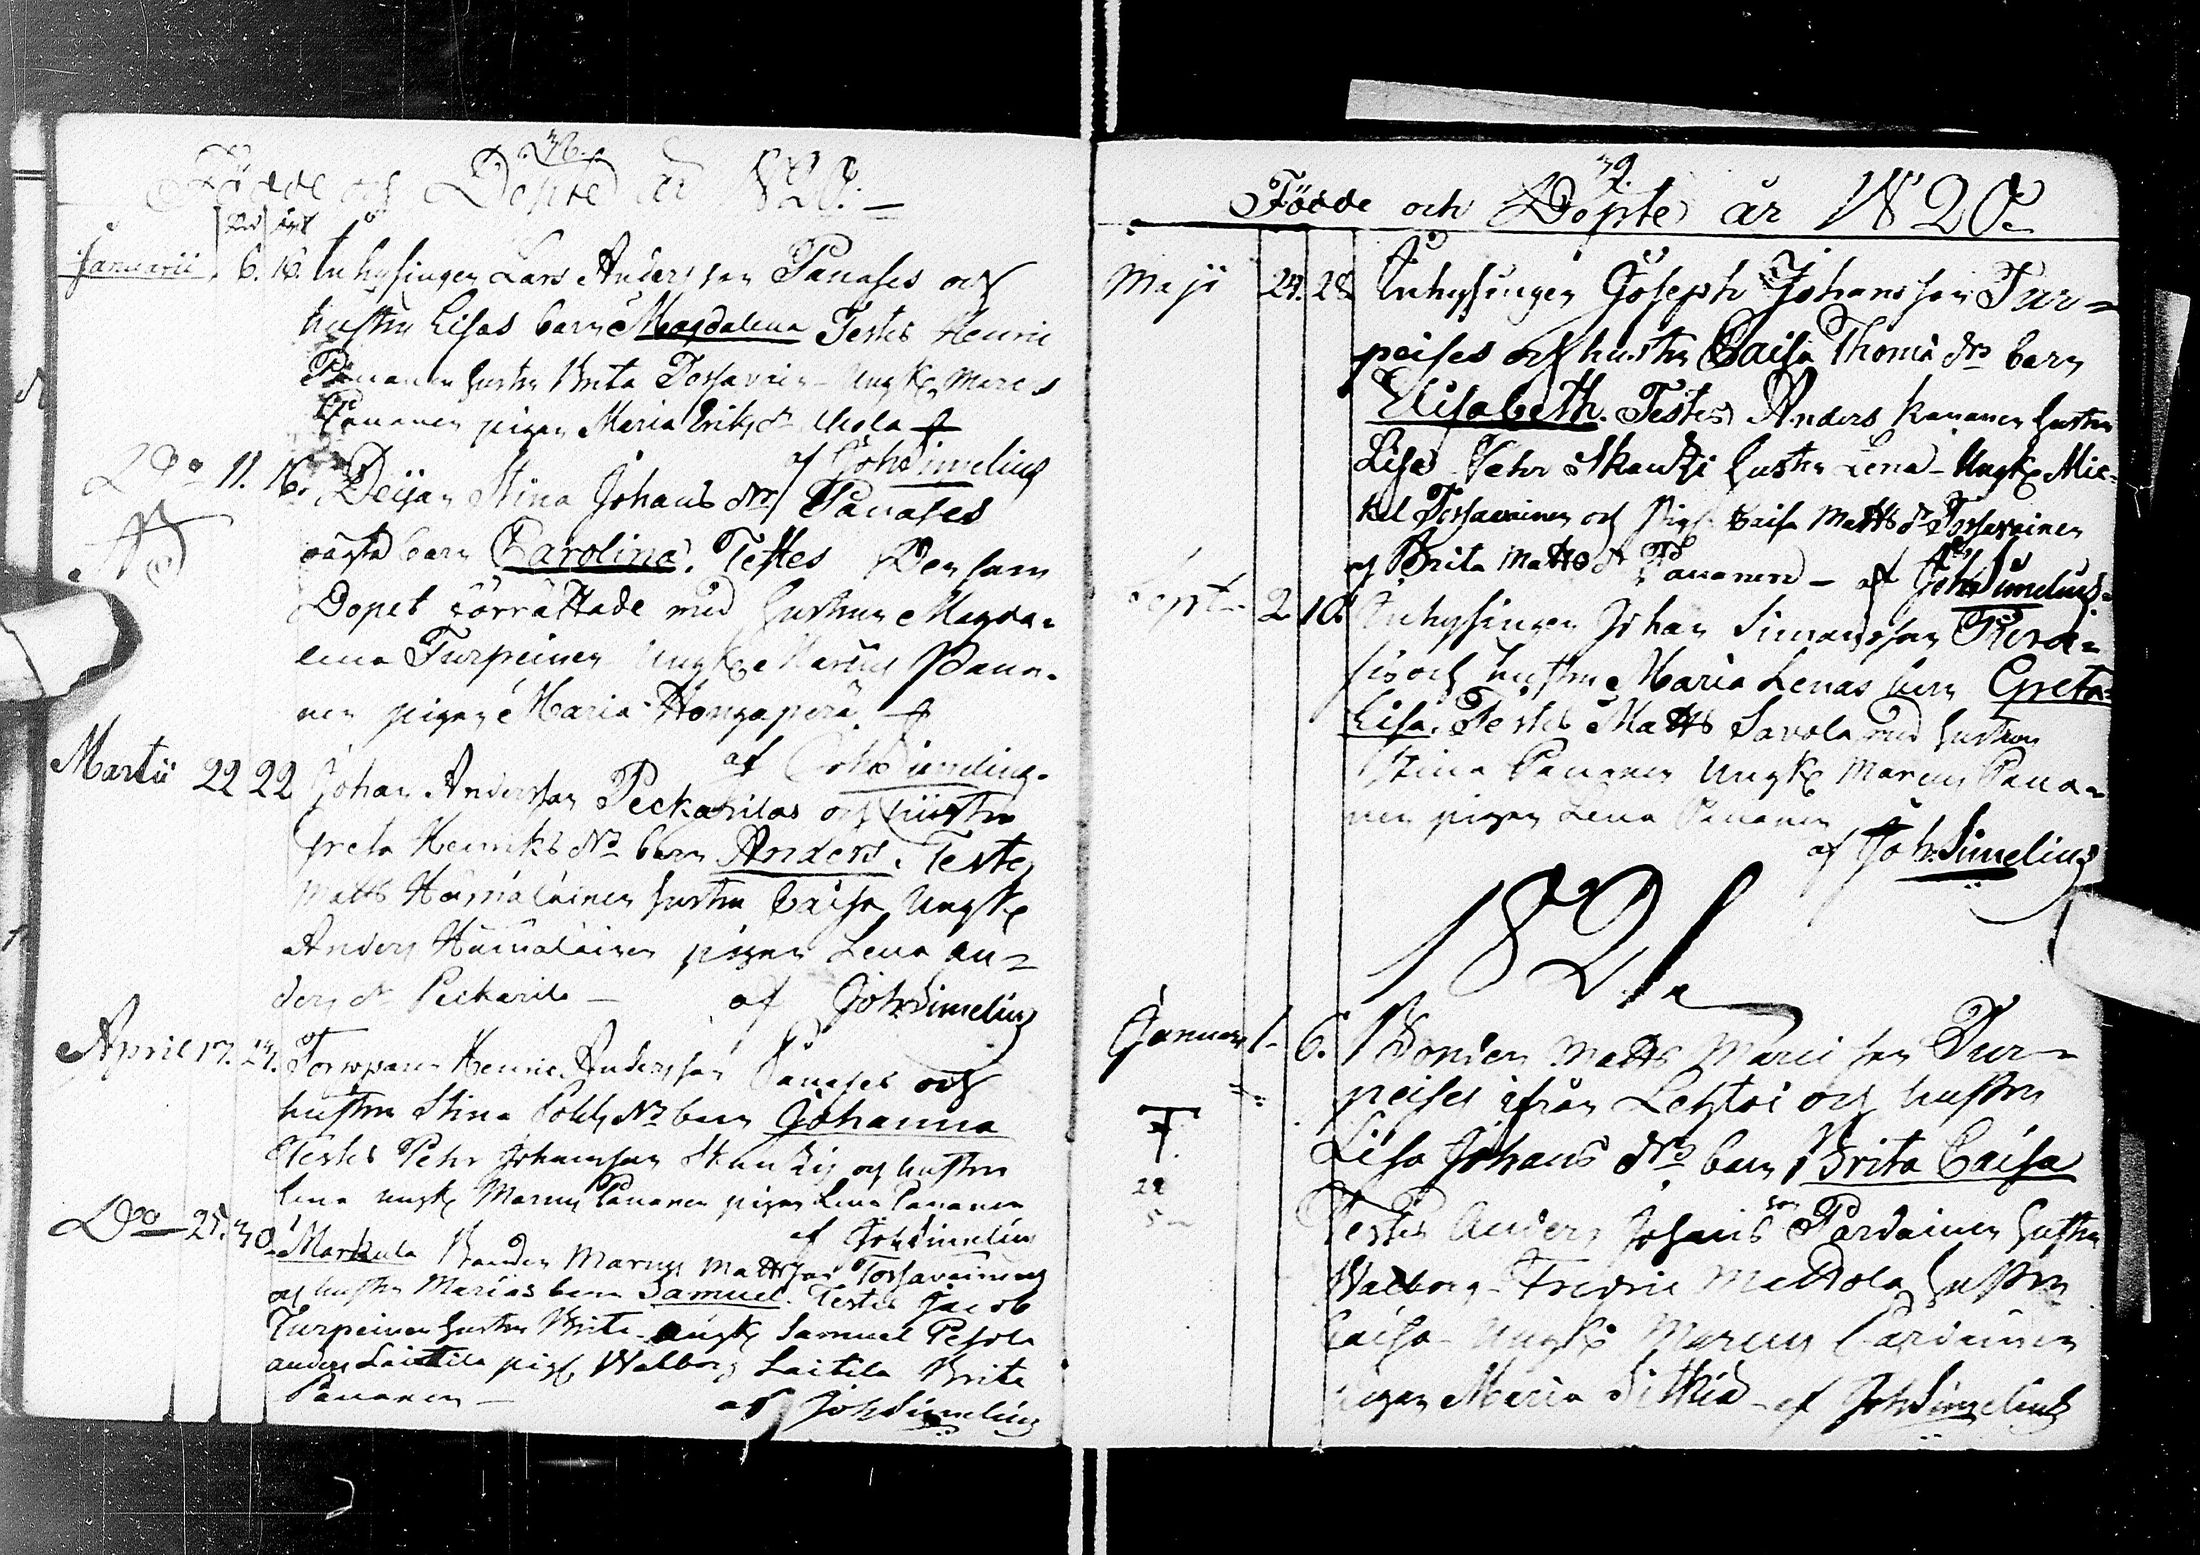 Födde och Döpte år 1820.
Januarii 6. 16. Inhysingen Lars Andersson Panases och
hustru Lisas barn Magdalena Testes Henric
Pananen hustru Brita Tossavain Ungk. Marcus
Pananen pigan Maria Eriks dr
af Joh. Simelius
Do 11. 16. Dejan Stina Johans dr Panases
oägta barn Carolina. Testes Den som
Dopet förrättade med hustrun Magda=
lena Turpeinen Ungk. Marcus Pana=
nen pigan Maria Hongaperä
af Joh. Simelius
Martii 22 22 Johan Andersson Peckarilas och hustru
Greta Henriks dr barn Anders. Testes
Matts Hämäläinen hustru Caisa Ungk.
Anders Hämäläinen pigan Lena An=
ders dr Peckarila — af Joh. Simelius
April 17. 24. Torpparen Henric Andersson Panases och
hustru Stina dr barn Johanna
Testes Petr Johansson och hustru
Lena ungk. Marcus Pananen pigan Lena Pananen
af Joh. Simelius
Do 25. 30. Markula Bonden Marcus Mattsson Tossavainens
och hustru Marias barn Samuel. Testes Jacob
Turpeinen hustru Brita Ungk. Samuel Pesola
Anders Laitila pig. Walborg Laitila Brita
Pananen — af Joh. Simelius
39.
Födde och Döpte år 1820.
Maji 24. 28. Inhysingen Joseph Johansson Tur=
peises och hustru Caisa Thomæ drs barn
Elisabeth. Testes Anders Kananen hustru
Lisa Petr hustru Lena – Ungk. Mic=
kel Tossavainen och Pig. Caisa Matts dr Tossavainen
och Brita Matts dr Pananen – af Joh. Simelius
Sept. 2 10. Inhysingen Johan Simonsson
och hustru Maria Lenas barn Greta
Lisa. Testes Matts Savola med hustrun
Stina Pananen Ungk. Marcus Pana=
nen pigan Lena Pananen
af Joh. Simelius
1821.
Januari 1. 6. Bonden Matts Marcisson Tur=
peises ifrån Lehtoi och hustru
Lisa Johans drs barn Brita Caisa
Testes Anders Johansson Pardainen hustru
Walborg – Fredric Mattola hustru
Caisa Ungk. Marcus Pardainen
pigan Maria – af Joh. Simelius